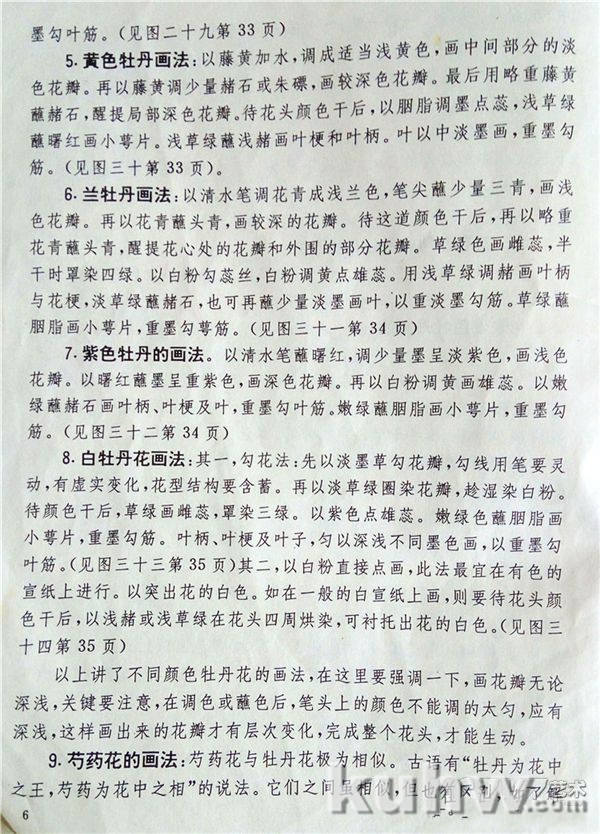 墨勾叶筋。(见图二十九第33页)
5.黄色牡丹画法:以藤黄加水,调成适当浅黄色,画中间部分的淡
色花瓣。再以藤黄调少量赭石或朱磦,画较深色花瓣。最后用略重藤黄
蘸赭石,醒提局部深色花瓣。待花头颜色干后,以胭脂调墨点蕊,浅草绿
蘸曙红画小萼片。浅草绿蘸浅赭画叶梗和叶柄。叶以中淡墨画,重墨勾
筋。(见图三十第33页)。
6.兰牡丹画法:以清水笔调花青成浅兰色,笔尖蘸少量三青,画浅
色花瓣。再以花青蘸头青,画较深的花瓣。待这道颜色干后,再以略重
花青蘸头青,醒提花心处的花瓣和外围的部分花瓣。草绿色画雌蕊,半
干时罩染四绿。以白粉勾蕊丝,白粉调黄点雄蕊。用浅草绿调赭画叶柄
与花梗,淡草绿蘸赭石,也可再蘸少量淡墨画叶,以重淡墨勾筋。草绿蘸
胭脂画小萼片,重墨勾萼筋。(见图三十一第34页)
7.紫色牡丹的画法。以清水笔蘸曙红,调少量墨呈淡紫色,画浅色
花瓣。以曙红蘸墨呈重紫色,画深色花瓣。再以白粉调黄画雄蕊。以嫩
绿蘸赭石画叶柄、叶梗及叶,重墨勾叶筋。嫩绿蘸胭脂画小萼片,重墨勾
筋。(见图三十二第34页)
8.白牡丹花画法:其一,勾花法:先以淡墨草勾花瓣,勾线用笔要灵
动,有虚实变化,花型结构要含蓄。再以淡草绿圈染花瓣,趁湿染白粉。
待颜色干后,草绿画雌蕊,罩染三绿。以紫色点雄蕊。嫩绿色蘸胭脂画
小萼片,重墨勾筋。叶柄、叶梗及叶子,匀以深浅不同墨色画,以重墨勾
叶筋。(见图三十三第35页)其二,以白粉直接点画,此法最宜在有色的
宣纸上进行。以突出花的白色。如在一般的白宣纸上画,则要待花头颜
色干后,以浅赭或浅草绿在花头四周烘染,可衬托出花的白色。(见图三
十四第35页)
以上讲了不同颜色牡丹花的画法,在这里要强调一下,画花瓣无论
深浅,关键要注意,在调色或蘸色后,笔头上的颜色不能调的太匀,应有
深浅,这样画出来的花瓣才有层次变化,完成整个花头,才能生动。
9.芍药花的画法:芍药花与牡丹花极为相似。古语有“牡丹为花中
之王,芍药为花中之相”的说法。它们之间虽相似,但也有区别,为了解
6